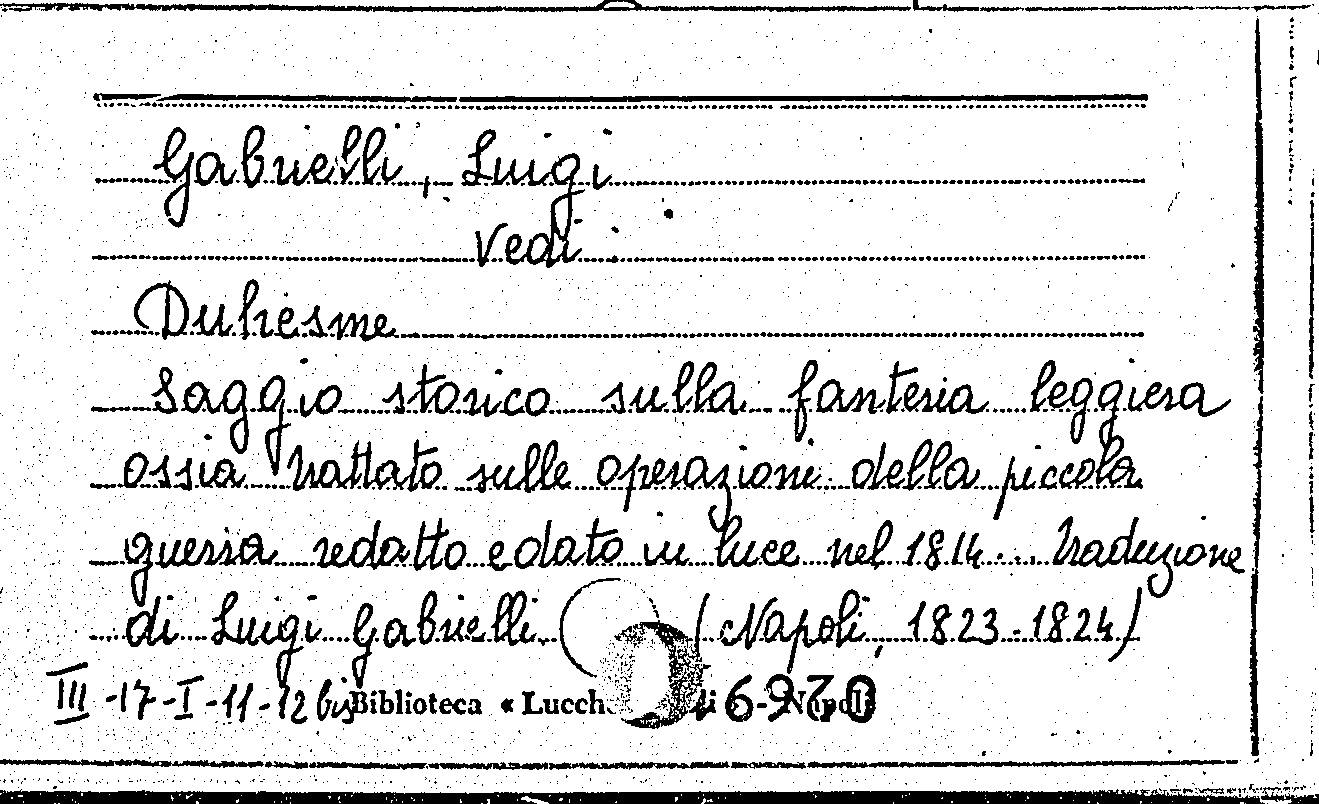 Gabrielli, Luigi
Vedi:
Duhesme
Saggio storico sulla fanteria leggiera
ossia trattato sulle operazioni della piccola
guerra redatto e dato in luce nel 1814... traduzione
di Luigi Gabrielli. (Napoli, 1823-1824)
III-17-I-11-12 bis Biblioteca « Lucch 6970